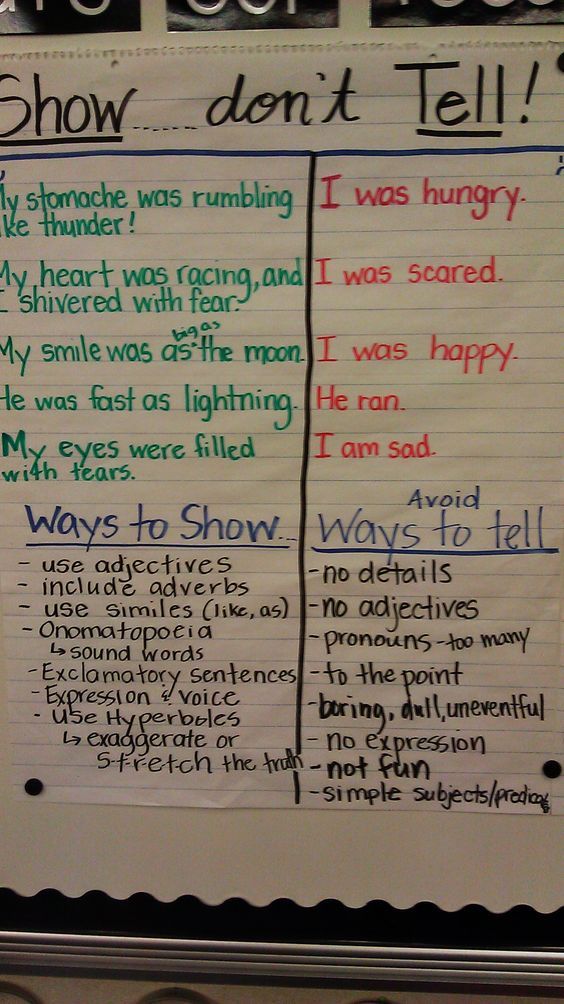 Show...... don't Tell!
My stomache was rumbling
like thunder!
I was hungry.
My heart was racing, and
I shivered with fear.
I was scared.
big as
My smile was as the moon.
I was happy.
He was fast as lightning.
He ran.
My eyes were filled
with tears.
I am sad.
Ways to Show...
- use adjectives
- include adverbs
- use similes (like, as)
- Onomatopoeia
↳ sound words
- Exclamatory sentences
- Expression & voice
- Use Hyperboles
↳ exaggerate or
stretch the truth
Avoid
Ways to tell
- no details
- no adjectives
- pronouns - too many
- to the point
- boring, dull, uneventful
- no expression
- not fun
- simple subjects/predicates